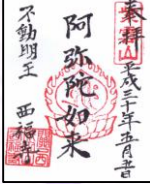 奉拝
平成三十年五月吉日
阿弥陀如来
不動明王
西福寺